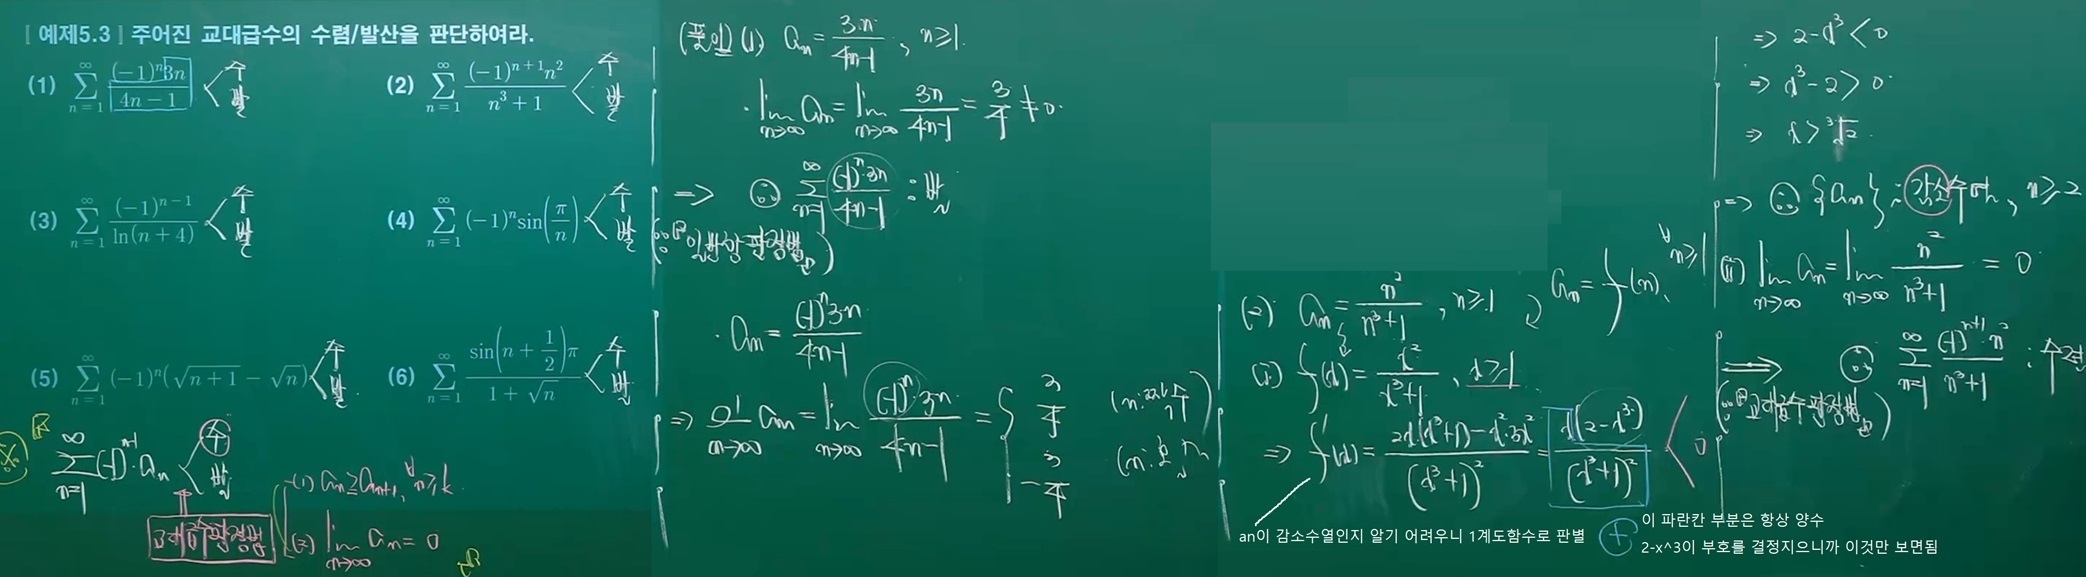 [예제5.3] 주어진 교대급수의 수렴/발산을 판단하여라.
(1) \sum_{n=1}^{∞} \frac{(-1)^n 3n}{4n-1} < 수 발
(2) \sum_{n=1}^{∞} \frac{(-1)^{n+1} n^2}{n^3+1} < 수 발
(3) \sum_{n=1}^{∞} \frac{(-1)^{n-1}}{\ln(n+4)} < 수 발
(4) \sum_{n=1}^{∞} (-1)^n \sin(\frac{π}{n}) < 수 발
(5) \sum_{n=1}^{∞} (-1)^n (\sqrt{n+1} - \sqrt{n}) < 수 발
(6) \sum_{n=1}^{∞} \frac{\sin(n+\frac{1}{2})π}{1+\sqrt{n}} < 수 발
※ \sum_{n=1}^{∞} (-1)^{n-1} \cdot a_n < 수 발
교대급수판정법
(1) a_n ≥ a_{n+1}, ∀n ≥ k
(2) \lim_{n→∞} a_n = 0
(풀이) (1) a_n = \frac{3n}{4n-1}, n ≥ 1.
· \lim_{n→∞} a_n = \lim_{n→∞} \frac{3n}{4n-1} = \frac{3}{4} ≠ 0.
⇒ ∴ \sum_{n=1}^{∞} \frac{(-1)^n \cdot 3n}{4n-1} : 발
(∵ 일반항 판정법)
· a_n = \frac{(-1)^n 3n}{4n-1}
⇒ \lim_{n→∞} a_n = \lim_{n→∞} \frac{(-1)^n \cdot 3n}{4n-1} = { \frac{3}{4} (n: 짝수)
-\frac{3}{4} (n: 홀수)
(2) a_n = \frac{n^2}{n^3+1}, n ≥ 1 a_n = f(n), ∀n ≥ 1
(i) f(x) = \frac{x^2}{x^3+1}, x ≥ 1
⇒ f'(x) = \frac{2x \cdot (x^3+1) - x^2 \cdot 3x^2}{(x^3+1)^2} = \frac{x(2-x^3)}{(x^3+1)^2} < 0
an이 감소수열인지 알기 어려우니 1계도함수로 판별
+ 이 파란칸 부분은 항상 양수
2-x^3이 부호를 결정지으니까 이것만 보면됨
⇒ 2-x^3 < 0
⇒ x^3-2 > 0
⇒ x > \sqrt[3]{2}
⇒ ∴ {a_n} : 감소수열, n ≥ 2
(ii) \lim_{n→∞} a_n = \lim_{n→∞} \frac{n^2}{n^3+1} = 0
⇒ ∴ \sum_{n=1}^{∞} \frac{(-1)^{n+1} \cdot n^2}{n^3+1} : 수렴
(∵ 교대급수판정법)